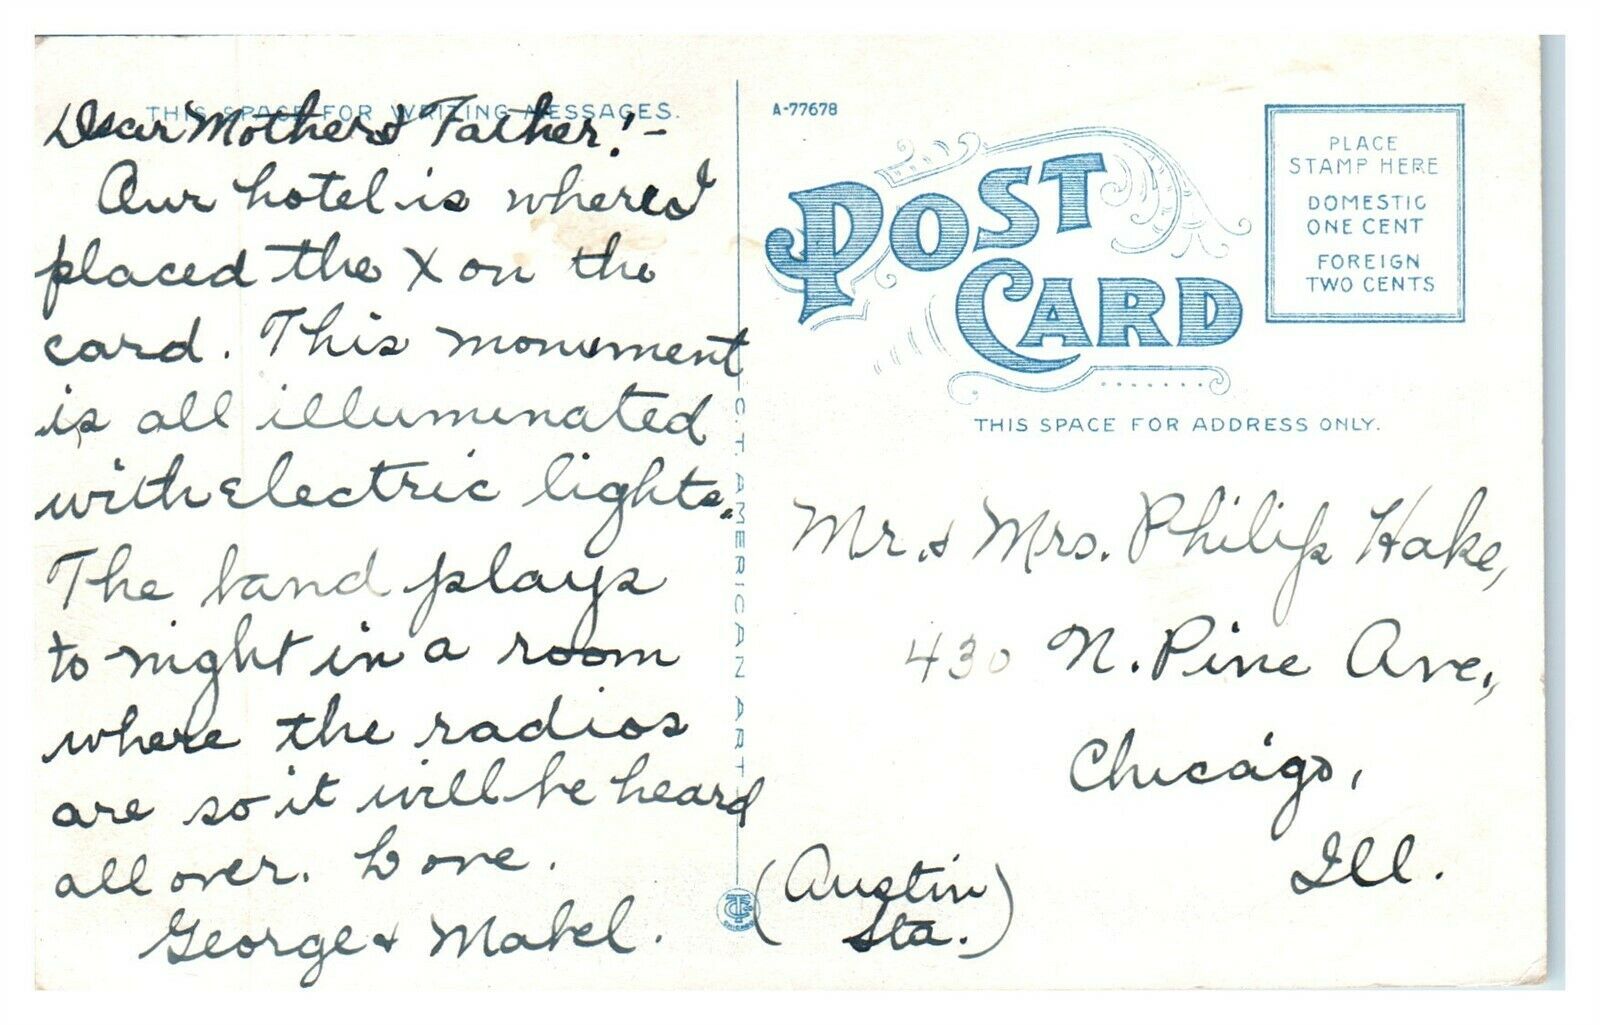 THIS SPACE FOR WRITING MESSAGES.
Dear Mother & Father! -
Our hotel is where I
placed the X on the
card. This monument
is all illuminated
with electric lights.
The band plays
to night in a room
where the radios
are so it will be heard
all over. Love.
George & Mabel.
C. T. AMERICAN ART
A-77678
POST CARD
PLACE
STAMP HERE
DOMESTIC
ONE CENT
FOREIGN
TWO CENTS
THIS SPACE FOR ADDRESS ONLY.
Mr. & Mrs. Philip Hake,
430 N. Pine Ave.,
Chicago,
Ill.
(Austin
Sta.)